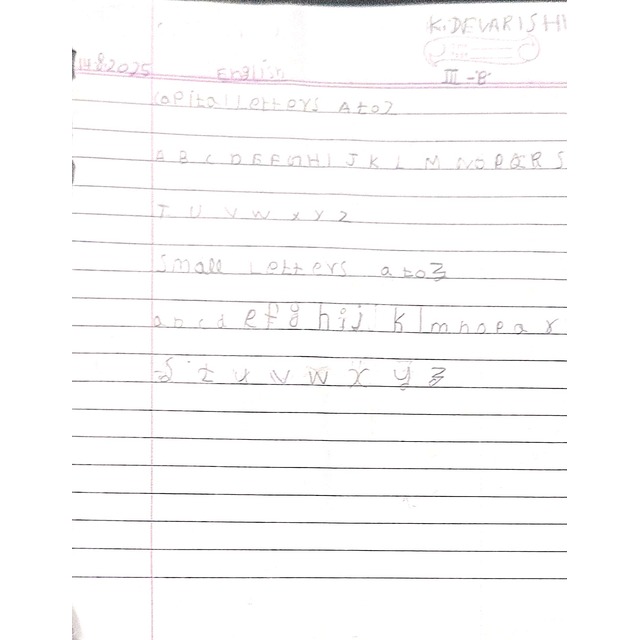 K.DEVARISHI
14.8.2025 English III-B
Capital Letters A to Z
A B C D E F G H I J K L M N O P Q R S
T U V W X Y Z
Small Letters a to z
a b c d e f g h i j k l m n o p q r
s t u v w x y z